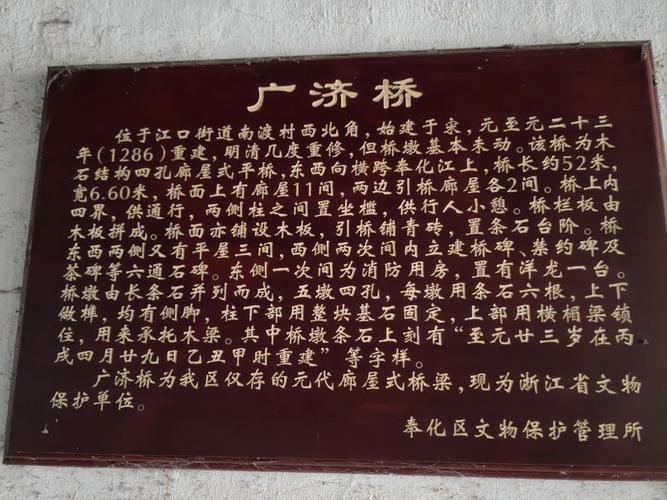 广济桥
位于江口街道南渡村西北角，始建于宋，元至元二十三
年(1286)重建，明清几度重修，但桥墩基本未动。该桥为木
石结构四孔廊屋式平桥，东西向横跨奉化江上，桥长约52米，
宽6.60米，桥面上有廊屋11间，两边引桥廊屋各2间。桥上内
四界，供通行，两侧柱之间置坐槛，供行人小憩。桥栏板由
木板拼成。桥面亦铺设木板，引桥铺青砖，置条石台阶。桥
东西两侧又有平屋三间，西侧两次间内立建桥碑、禁约碑及
茶碑等六通石碑。东侧一次间为消防用房，置有洋龙一台。
桥墩由长条石并列而成，五墩四孔，每墩用条石六根，上下
做榫，均有侧脚，柱下部用整块基石固定，上部用横楣梁锁
住，用来承托木梁。其中桥墩条石上刻有“至元廿三岁在丙
戌四月廿九日乙丑甲时重建”等字样。
广济桥为我区仅存的元代廊屋式桥梁，现为浙江省文物
保护单位。
奉化区文物保护管理所